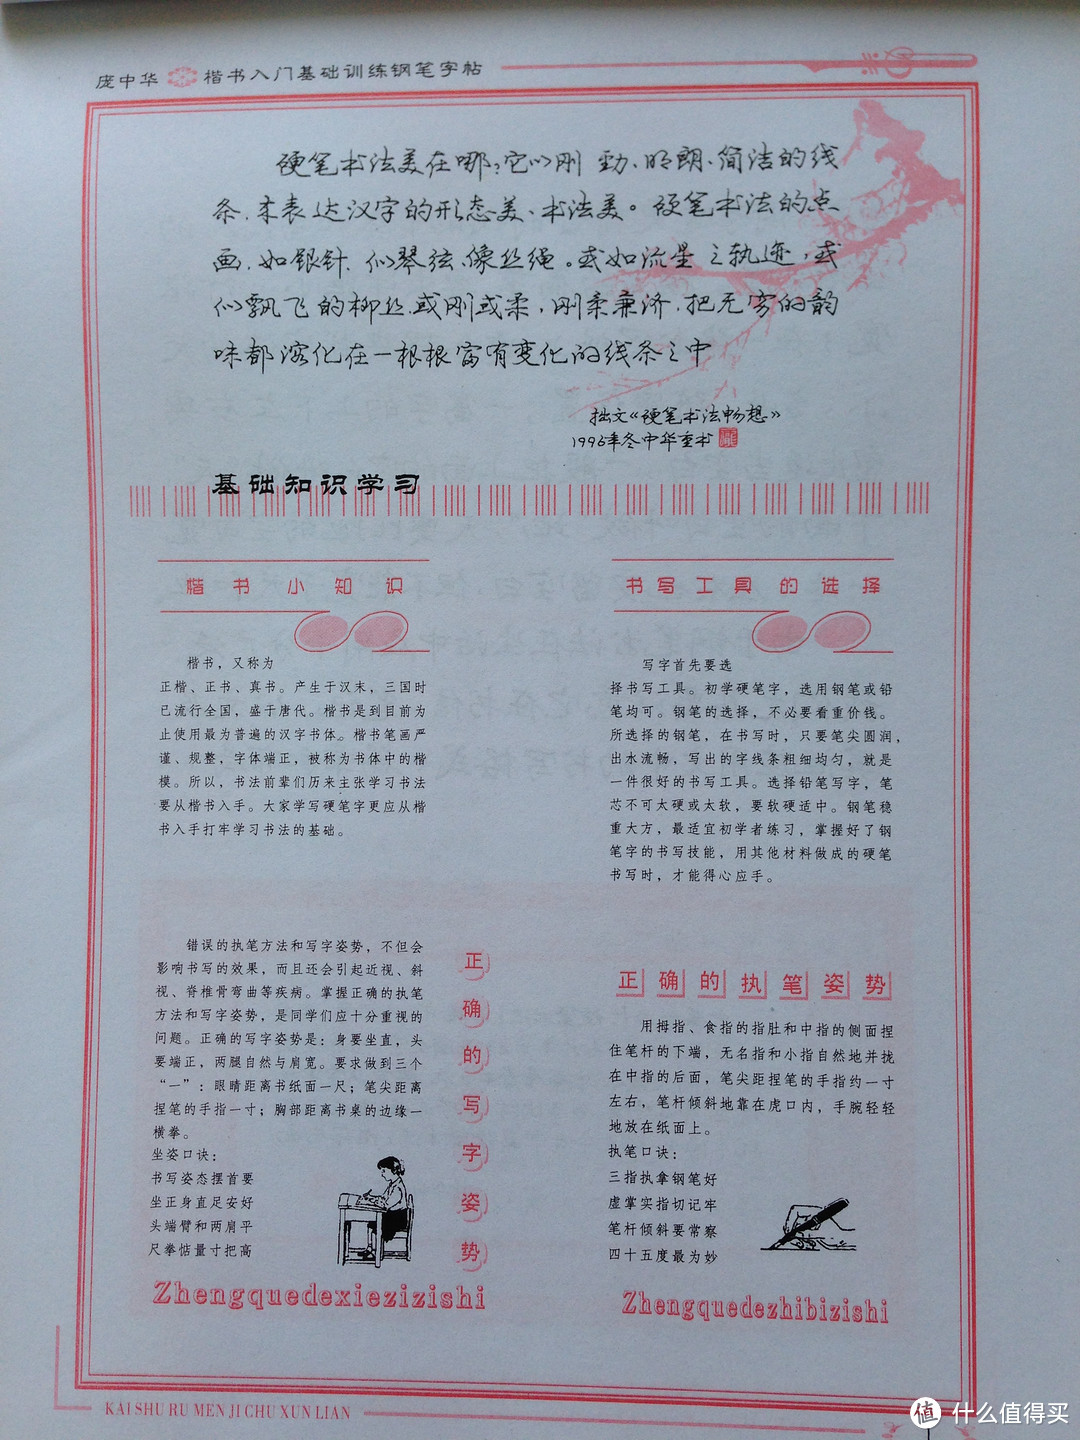 庞中华 楷书入门基础训练钢笔字帖
硬笔书法美在哪？它以刚劲、明朗、简洁的线
条，来表达汉字的形态美、书法美。硬笔书法的点
画，如银针、似琴弦、像丝绳。或如流星之轨迹，或
似飘飞的柳丝，或刚或柔，刚柔兼济，把无穷的韵
味都溶化在一根根富有变化的线条之中
拙文《硬笔书法畅想》
1996年冬中华重书
基础知识学习
楷书小知识
楷书，又称为
正楷、正书、真书。产生于汉末，三国时
已流行全国，盛于唐代。楷书是到目前为
止使用最为普遍的汉字书体。楷书笔画严
谨、规整，字体端正，被称为书体中的楷
模。所以，书法前辈们历来主张学习书法
要从楷书入手。大家学写硬笔字更应从楷
书入手打牢学习书法的基础。
书写工具的选择
写字首先要选
择书写工具。初学硬笔字，选用钢笔或铅
笔均可。钢笔的选择，不必要看重价钱。
所选择的钢笔，在书写时，只要笔尖圆润，
出水流畅，写出的字线条粗细均匀，就是
一件很好的书写工具。选择铅笔写字，笔
芯不可太硬或太软，要软硬适中。钢笔稳
重大方，最适宜初学者练习，掌握好了钢
笔字的书写技能，用其他材料做成的硬笔
书写时，才能得心应手。
正确的写字姿势
错误的执笔方法和写字姿势，不但会
影响书写的效果，而且还会引起近视、斜
视、脊椎骨弯曲等疾病。掌握正确的执笔
方法和写字姿势，是同学们应十分重视的
问题。正确的写字姿势是：身要坐直，头
要端正，两腿自然与肩宽。要求做到三个
“一”：眼睛距离书纸面一尺；笔尖距离
捏笔的手指一寸；胸部距离书桌的边缘一
横拳。
坐姿口诀：
书写姿态摆首要
坐正身直足安好
头端臂和两肩平
尺拳惦量寸把高
Zhengquedexiezizishi
正确的执笔姿势
用拇指、食指的指肚和中指的侧面捏
住笔杆的下端，无名指和小指自然地并拢
在中指的后面，笔尖距捏笔的手指约一寸
左右，笔杆倾斜地靠在虎口内，手腕轻轻
地放在纸面上。
执笔口诀：
三指执拿钢笔好
虚掌实指切记牢
笔杆倾斜要常察
四十五度最为妙
Zhengquedezhibizishi
KAI SHU RU MEN JI CHU XUN LIAN
值 什么值得买